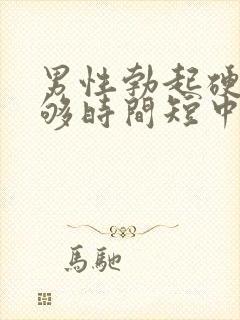 男性勃起硬
够時間短中
馬馳